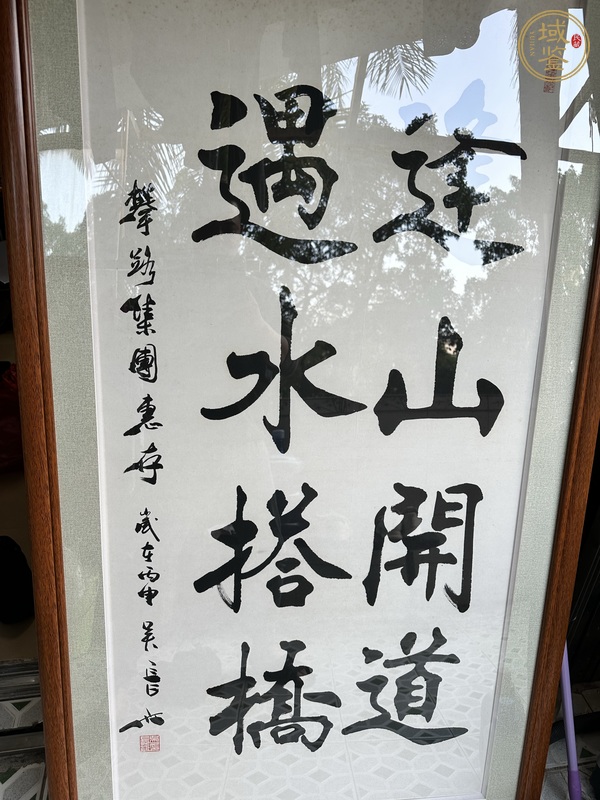 逢山開道
遇水搭橋
路集團惠存 歲在丙申
域鑒